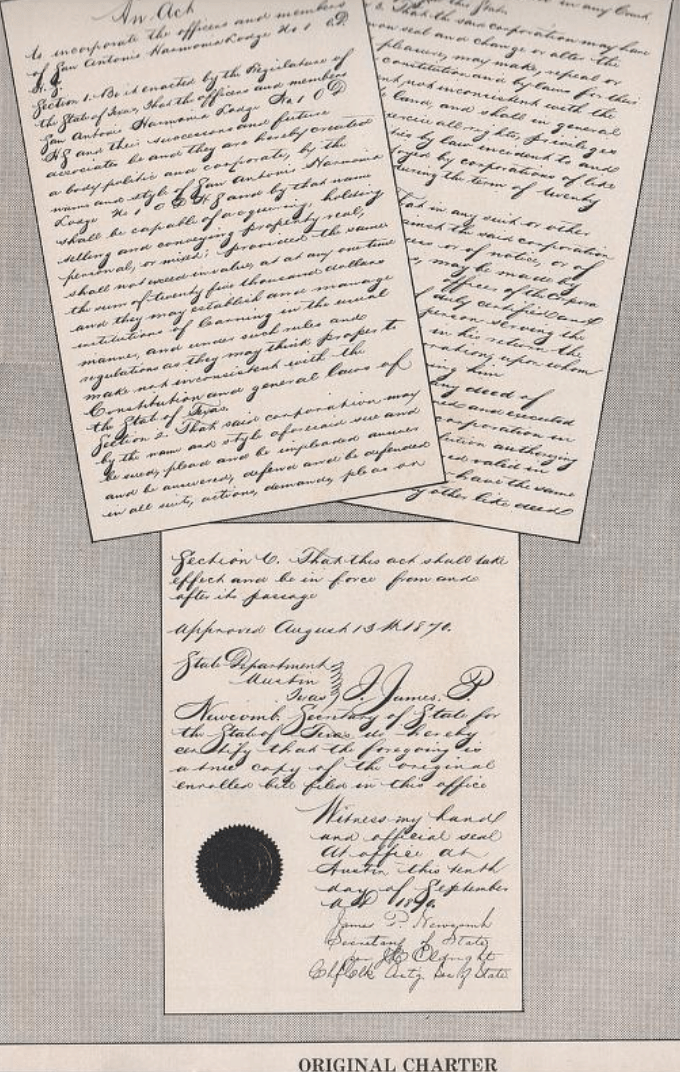 An Act
to incorporate the officers and members
of San Antonio Harmonia Lodge No 1 O.D.
H.S.
Section 1. Be it enacted by the Legislature of
the State of Texas, That the officers and members
San Antonio Harmonia Lodge No 1 O D
H S and their successors and future
associates be and they are hereby created
a body politic and corporate, by the
name and style of San Antonio Harmonia
Lodge No 1 O D H S and by that name
shall be capable of acquiring, holding
selling and conveying property real,
personal, or mixed; provided the same
shall not exceed in value, at any one time
the sum of twenty five thousand dollars
and they may establish and manage
institutions of learning in the usual
manner, and under such rules and
regulations as they may think proper to
make not inconsistent with the
Constitution and general laws of
the State of Texas.
Section 2. That said corporation may
by the name and style aforesaid sue and
be sued, plead and be impleaded answer
and be answered, defend and be defended
in all suits, actions, demands, pleas or
in any Court
this State
That the said corporation may have
seal and change or alter the
pleasure, may make, repeal or
constitution and by laws for their
not inconsistent with the
land, and shall in general
all rights, privileges
by law incident to and
by corporations of like
during the term of twenty
That in any suit or other
the said corporation
or of notice, or of
may be made by
officers of the corpora
duly certified and
person serving the
in his return the
upon whom
him
any deed of
and executed
corporation in
authorizing
valid in
have the same
other like deed
Section 6. That this act shall take
effect and be in force from and
after its passage
Approved August 13th 1870.
State Department
Austin
Texas
I, James. P.
Newcomb, Secretary of State for
the State of Texas do hereby
certify that the foregoing is
a true copy of the original
enrolled bill filed in this office
Witness my hand
and official seal
At office at
Austin this tenth
day of September
A.D. 1870.
James P. Newcomb
Secretary of State
Chf Clk Actg Sec of State
ORIGINAL CHARTER